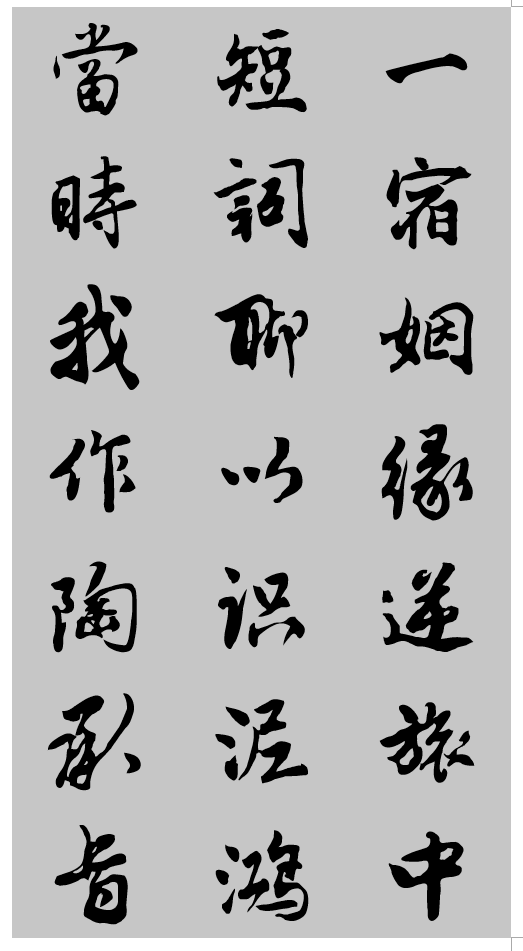 一宿姻緣逆旅中
短詞聊以识泥鸿
當時我作陶承旨